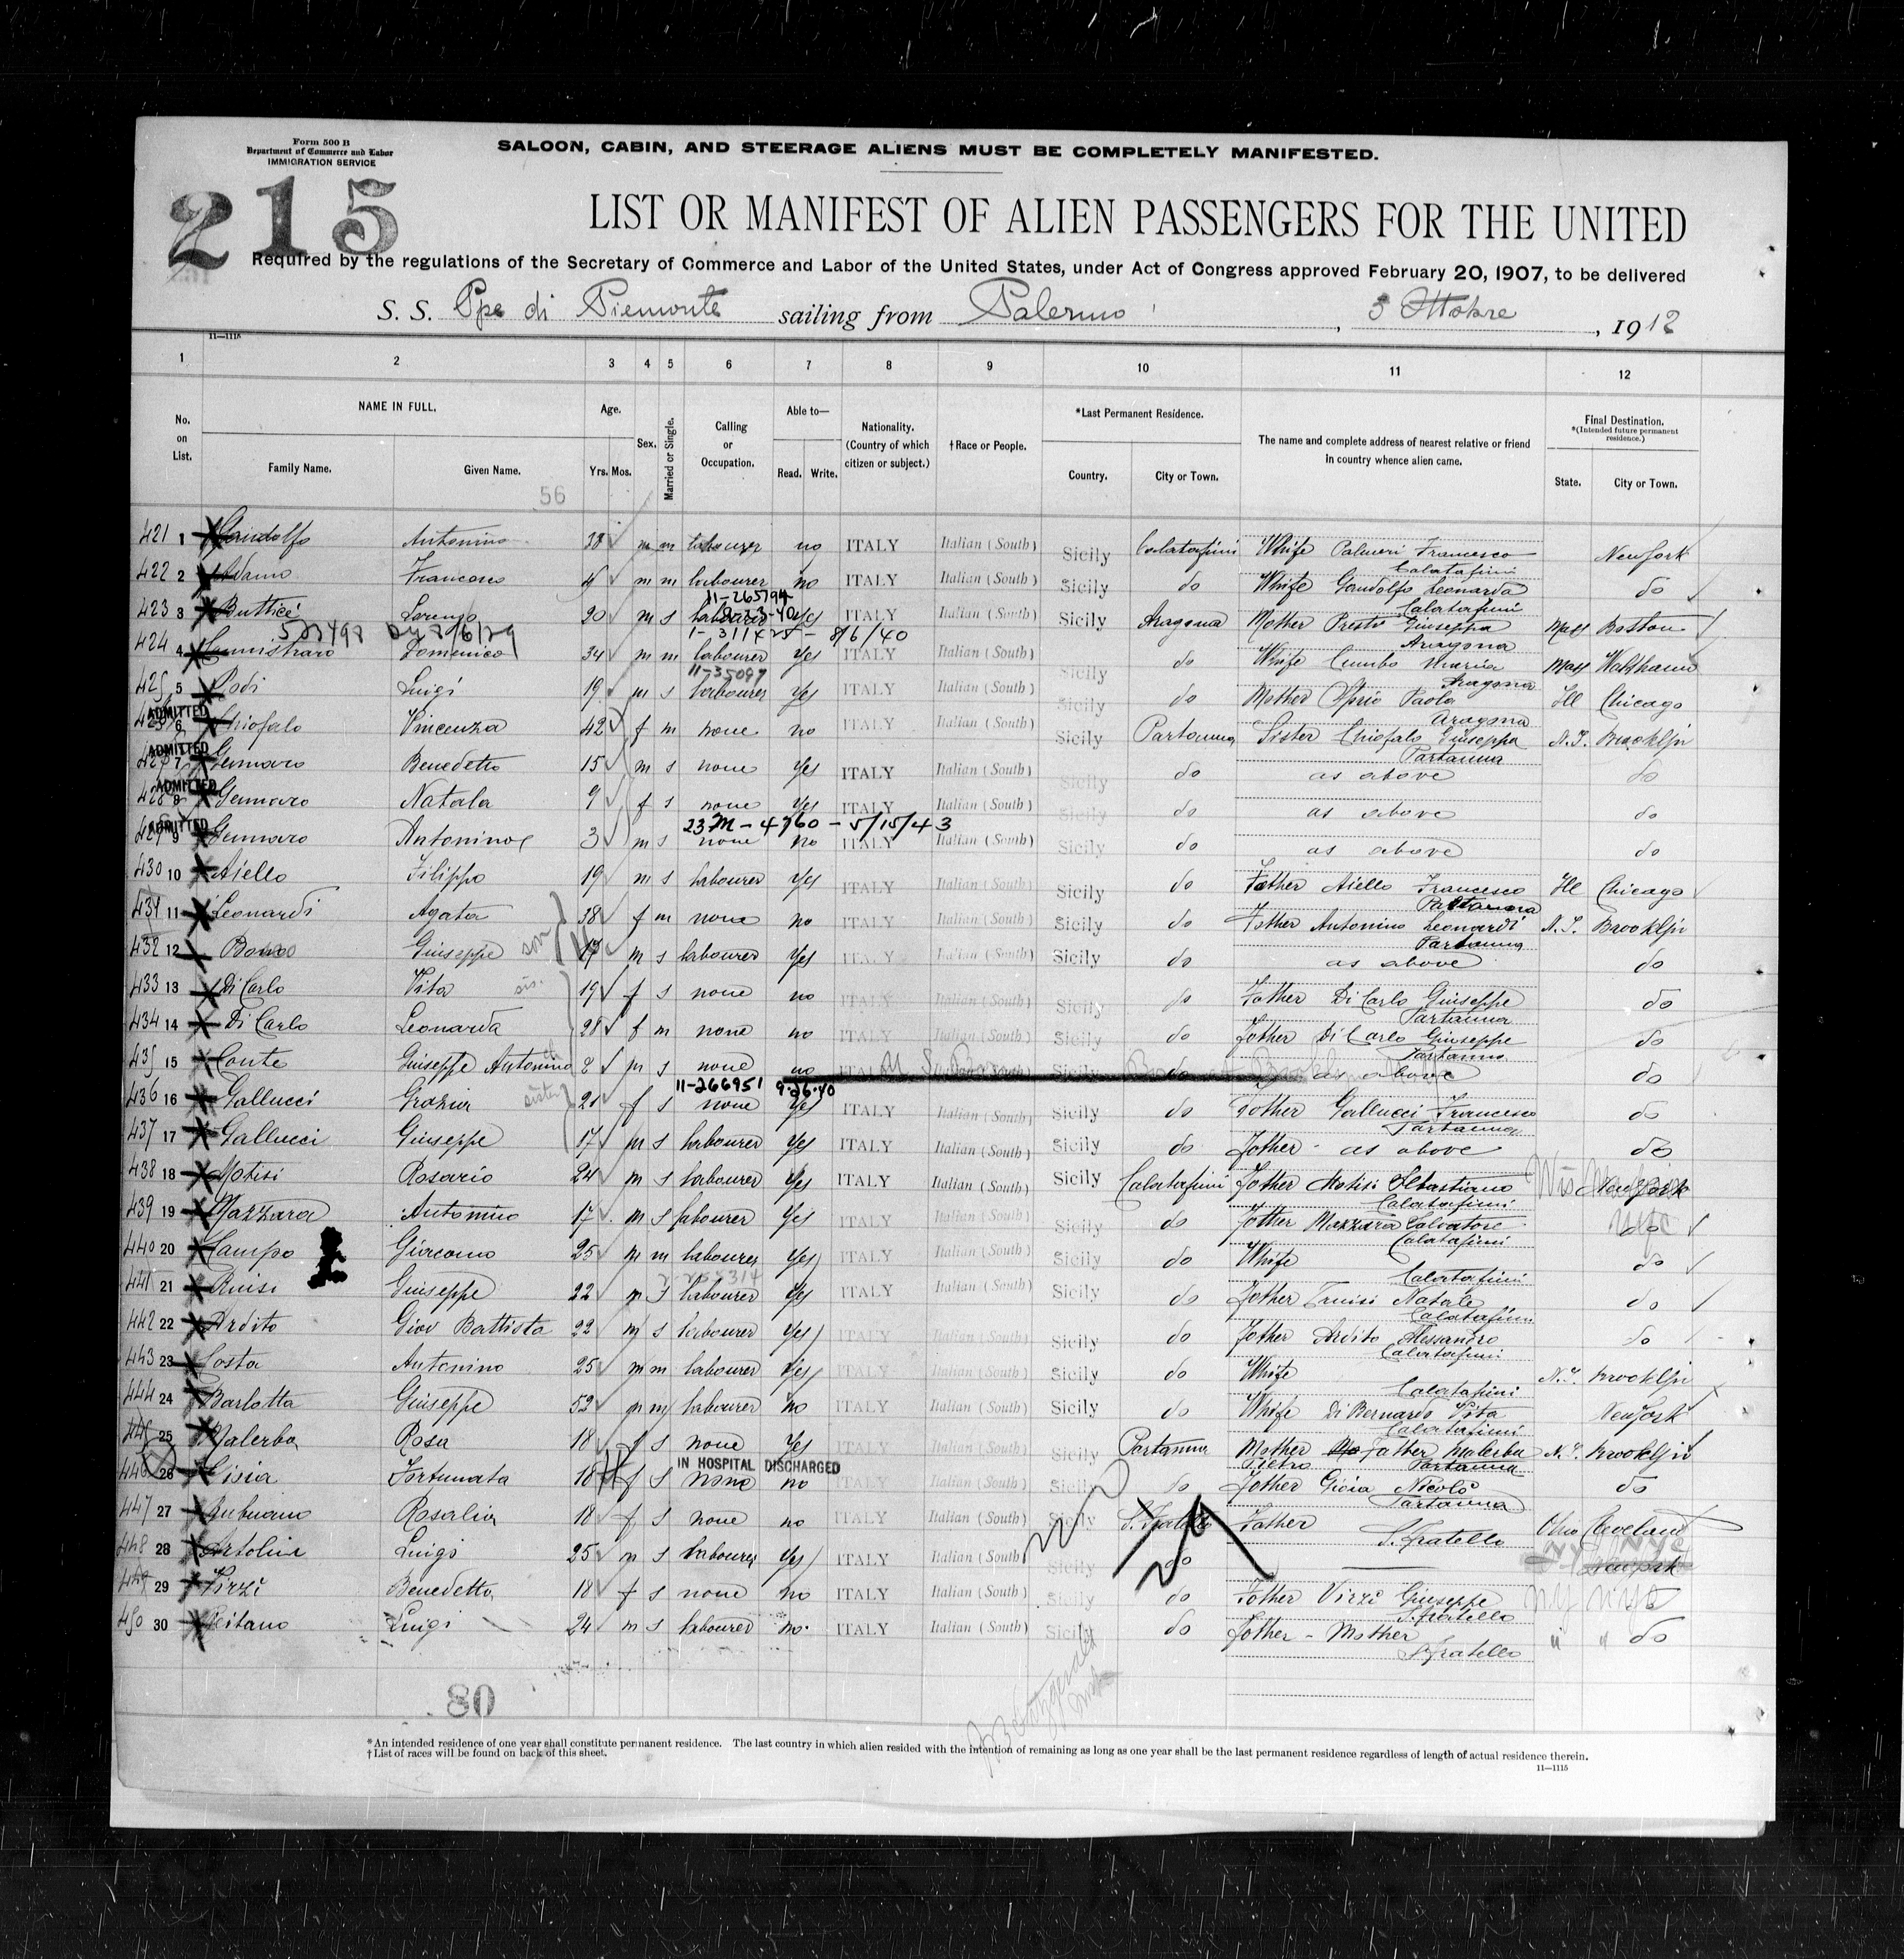 Form 500 B
Department of Commerce and Labor
IMMIGRATION SERVICE
SALOON, CABIN, AND STEERAGE ALIENS MUST BE COMPLETELY MANIFESTED.
215
LIST OR MANIFEST OF ALIEN PASSENGERS FOR THE UNITED
Required by the regulations of the Secretary of Commerce and Labor of the United States, under Act of Congress approved February 20, 1907, to be delivered
S. S. Ppe di Piemonte sailing from Palermo, 3 Ottobre, 1912
11—1115
1 2 3 4 5 6 7 8 9 10 11 12
No. on List.
NAME IN FULL.
Family Name. Given Name.
Age.
Yrs. Mos.
Sex.
Married or Single.
Calling or Occupation.
Able to—
Read. Write.
Nationality. (Country of which citizen or subject.)
†Race or People.
*Last Permanent Residence.
Country. City or Town.
The name and complete address of nearest relative or friend in country whence alien came.
Final Destination.
*(Intended future permanent residence.)
State. City or Town.
56
421 1 Gandolfo Antonino 38 m m labourer no ITALY Italian (South) Sicily Calatafimi Whife Palmeri Francesco New York
Calatafimi
422 2 Adamo Francesco m m labourer no ITALY Italian (South) Sicily do Whife Gandolfo Leonarda do
11-265794 Calatafimi
423 3 Butticé Lorenzo 20 m s Yes ITALY Italian (South) Sicily Aragona Mother Giuseppa Mass Boston
1-311425 - 8/6/40 Aragona
424 4 Domenico 34 m m labourer Yes ITALY Italian (South) Sicily do Whife Cumbo Maria Mass Waltham
11-35097 Aragona
425 5 Luigi 19 m s labourer Yes ITALY Italian (South) Sicily do Mother Paola Ill Chicago
ADMITTED Aragona
6 Chiofalo Vincenza 42 f m none no ITALY Italian (South) Sicily Partanna Sister Chiofalo Giuseppa N.Y. Brookljn
ADMITTED Partanna
7 Gennaro Benedetto 15 m s none Yes ITALY Italian (South) Sicily do as above do
ADMITTED
428 8 Gennaro Natala 9 f s none Yes ITALY Italian (South) Sicily do as above do
23 M - 4760 - 5/15/43
ADMITTED
429 9 Gennaro Antonino 3 m s none no ITALY Italian (South) Sicily do as above do
430 10 Aiello Filippo 19 m s labourer Yes ITALY Italian (South) Sicily do Father Aiello Francesco Ill Chicago
Partanna
431 11 Leonardi Agata 38 f m none no ITALY Italian (South) Sicily do Father Antonino Leonardi N.Y. Brookljn
Partanna
432 12 Bono Giuseppe son 17 m s labourer Yes ITALY Italian (South) Sicily do as above do
433 13 Di Carlo Vita sis. 19 f s none no ITALY Italian (South) Sicily do Father Di Carlo Giuseppe do
Partanna
434 14 Di Carlo Leonarda 28 f m none no ITALY Italian (South) Sicily do Father Di Carlo Giuseppe do
Partanna
435 15 Conte Giuseppe Antonino 2 m s none no ITALY do as above do
11-266951 9-26-40
436 16 Gallucci Grazia sister 21 f s none Yes ITALY Italian (South) Sicily do Father Gallucci Francesco do
Partanna
437 17 Gallucci Giuseppe 17 m s labourer Yes ITALY Italian (South) Sicily do Father as above do
438 18 Motisi Rosario 24 m s labourer Yes ITALY Italian (South) Sicily Calatafimi Father Motisi Sebastiano New York
Calatafimi
439 19 Mazzara Antonino 17 m s labourer Yes ITALY Italian (South) Sicily do Father Mazzara Salvatore do
Calatafimi
440 20 Campo Giacomo 25 m m labourer Yes ITALY Italian (South) Sicily do Whife do
Calatafimi
441 21 Giuseppe 22 m s labourer Yes ITALY Italian (South) Sicily do Father Natale do
Calatafimi
442 22 Ardito Giov Battista 22 m s labourer Yes ITALY Italian (South) Sicily do Father Ardito Alessandro do
Calatafimi
443 23 Costa Antonino 25 m m labourer Yes ITALY Italian (South) Sicily do Whife N.Y. Brookljn
Calatafimi
444 24 Barlotta Giuseppe 52 m m labourer no ITALY Italian (South) Sicily do Whife Di Bernardo Vita New York
Calatafimi
445 25 Malerba Rosa 18 f s none Yes ITALY Italian (South) Sicily Partanna Mother Father Malerba N.Y. Brooklin
IN HOSPITAL DISCHARGED Pietro Partanna
446 26 Fortunata 18 f s none no ITALY Italian (South) Sicily do Father Gioia Nicolò do
Partanna
447 27 Rosalia 18 f s none no ITALY Italian (South) Sicily S. Fratello Father Ohio Cleveland
S. Fratello
448 28 Luigi 25 m s labourer Yes ITALY Italian (South) Sicily do New York
449 29 Virzì Benedetta 18 f s none no ITALY Italian (South) Sicily do Father Virzì Giuseppe
S. Fratello
450 30 Reitano Luigi 24 m s labourer no ITALY Italian (South) Sicily do Father - Mother do
S. Fratello
80
*An intended residence of one year shall constitute permanent residence. The last country in which alien resided with the intention of remaining as long as one year shall be the last permanent residence regardless of length of actual residence therein.
†List of races will be found on back of this sheet.
11—1115